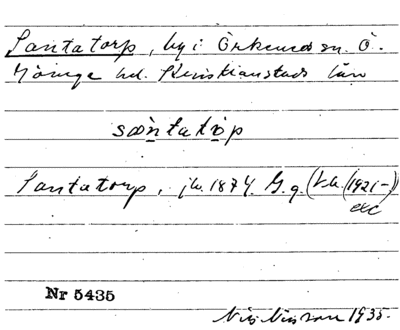 Santatorp, by i Örkeneds sn. Ö.
Göinge hd. Kristianstads län
sàntatòp
Santatorp, jb. 1874. G.q. (1921-)
etc
Nr 5435
Nils Nilsson 1935.